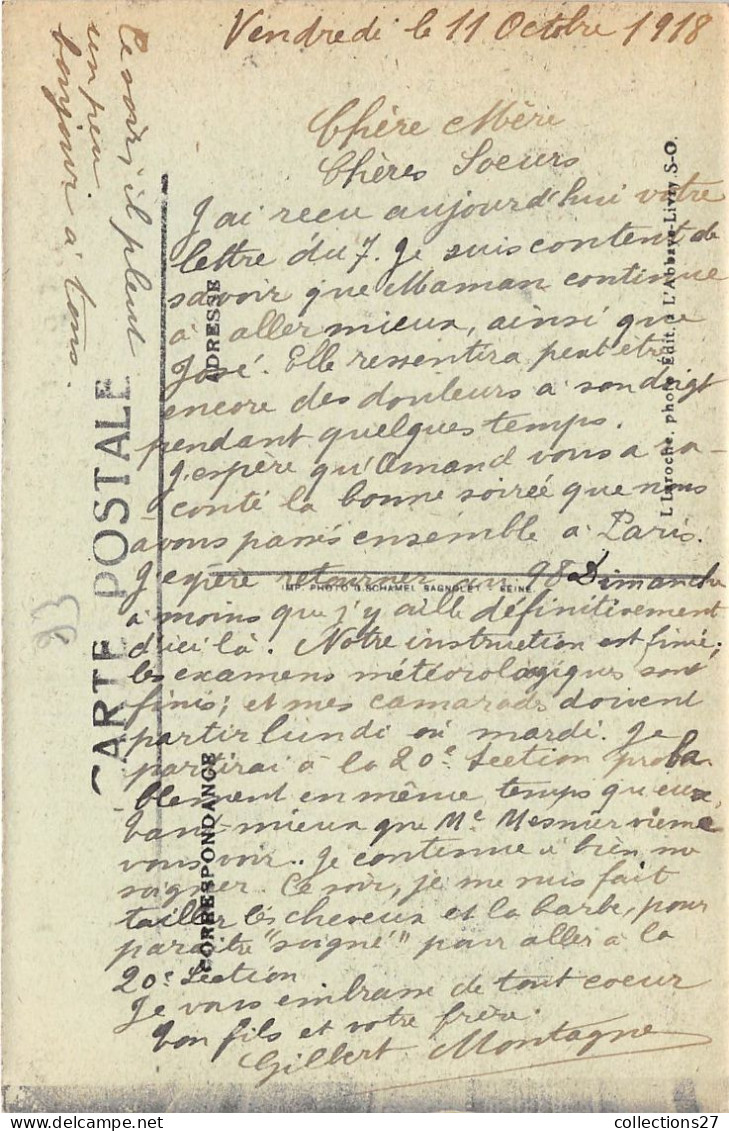 Vendredi le 11 Octobre 1918
Chère Mère
Chères Soeurs
J'ai recu aujourd'hui votre
lettre du 7. Je suis content de
savoir que Maman continue
à aller mieux, ainsi que
José. Elle ressentira peut être
encore des douleurs à son doigt
pendant quelques temps.
J'espère qu'Amand vous a ra-
conté la bonne soirée que nous
avons passés ensemble à Paris.
J'espère retourner au 98 Dimanche
à moins que j'y aille définitivement
d'ici là. Notre instruction est finie;
les examens météorologiques sont
finis; et mes camarads doivent
partir lundi ou mardi. Je
partirai à la 20e Section proba
blement en même temps qu'eux,
tant-mieux que Me Mesnier vienne
vous voir.. Je continue à bien me
soigner. Ce soir, je me suis fait
tailler les cheveux et la barbe, pour
paraître "soigné" pour aller à la
20e Section
Je vous embrasse de tout coeur
bon fils et votre frère.
Gilbert Montagne
Ce soir, il pleut
un peu
bonjour à tous.
CARTE POSTALE
CORRESPONDANCE
ADRESSE
L. Laroche, photo. Édit. à L'Abbaye-Livry. S-O.
IMP. PHOTO D.SCHAMEL BAGNOLET - SEINE
93
collections27